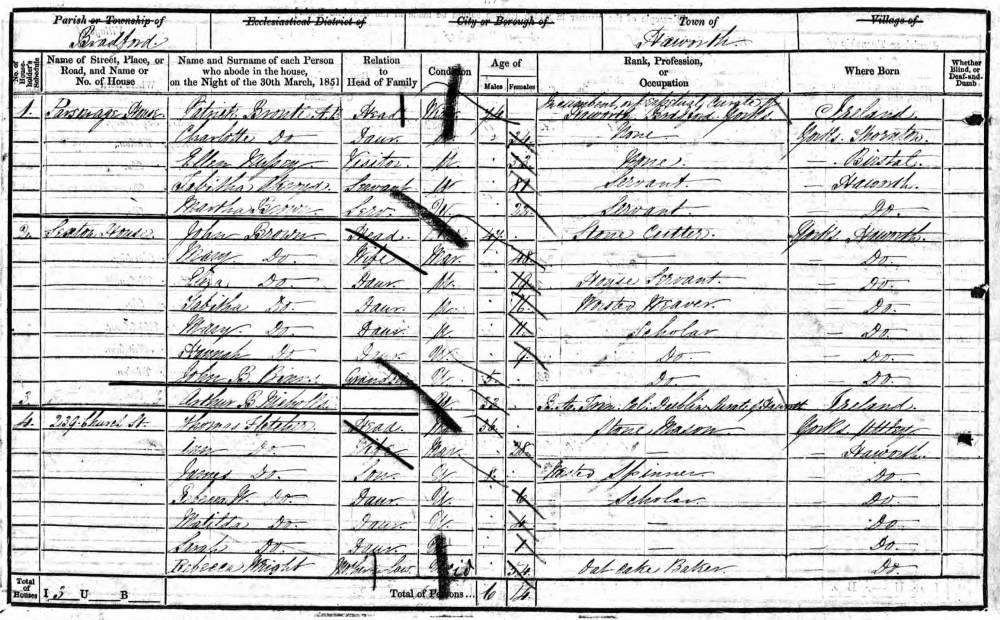 Parish or Township of Ecclesiastical District of City or Borough of Town of Village of
Bradford Haworth
No. of House-holder's Schedule Name of Street, Place, or Road, and Name or No. of House Name and Surname of each Person who abode in the house, on the Night of the 30th March, 1851 Relation to Head of Family Condition Age of Males Females Rank, Profession, or Occupation Where Born Whether Blind, or Deaf-and-Dumb
1. Parsonage House Patrick Brontë A.B. Head 74 Incumbent, or Perpetual Curate of Haworth, Bradford, Yorks Ireland
Charlotte Do Daur U. 34 None Yorks. Thornton
Ellen Nussey Visitor U. 32 None — Birstal
Tabitha Servant W 81 Servant — Haworth
Martha Brown Serv. U. 23 Servant Do.
2. Sexton House John Brown Head 47 Stone Cutter Yorks. Haworth
Mary Do. Wife Mar 48 — Do.
Eliza Do. Daur U. 19 House Servant — Do.
Tabitha Do Daur U. 16 Worsted Weaver — Do
Mary Do Daur U 11 Scholar — Do
Hannah Do Daur U. Do — Do.
John B. Grandson U. 5 Do — Do.
3 Arthur B Nicholls U 32 B.A. Trin. Col. Dublin Curate of Haworth Ireland
4. 239 Church St. Thomas Head 36 Stone Mason Yorks
Ann Do Wife Mar 38 — Haworth
James Do. Son U. Worsted Spinner — Do
Rebecca W. Do Daur U. 6 Scholar — Do.
Matilda Do. Daur U. 4 — Do.
Sarah Do. Daur U 1 — Do
Rebecca Wright Wid 54 Oat Cake Baker — Do.
Total of Houses I 3 U B Total of Persons ... 6 14